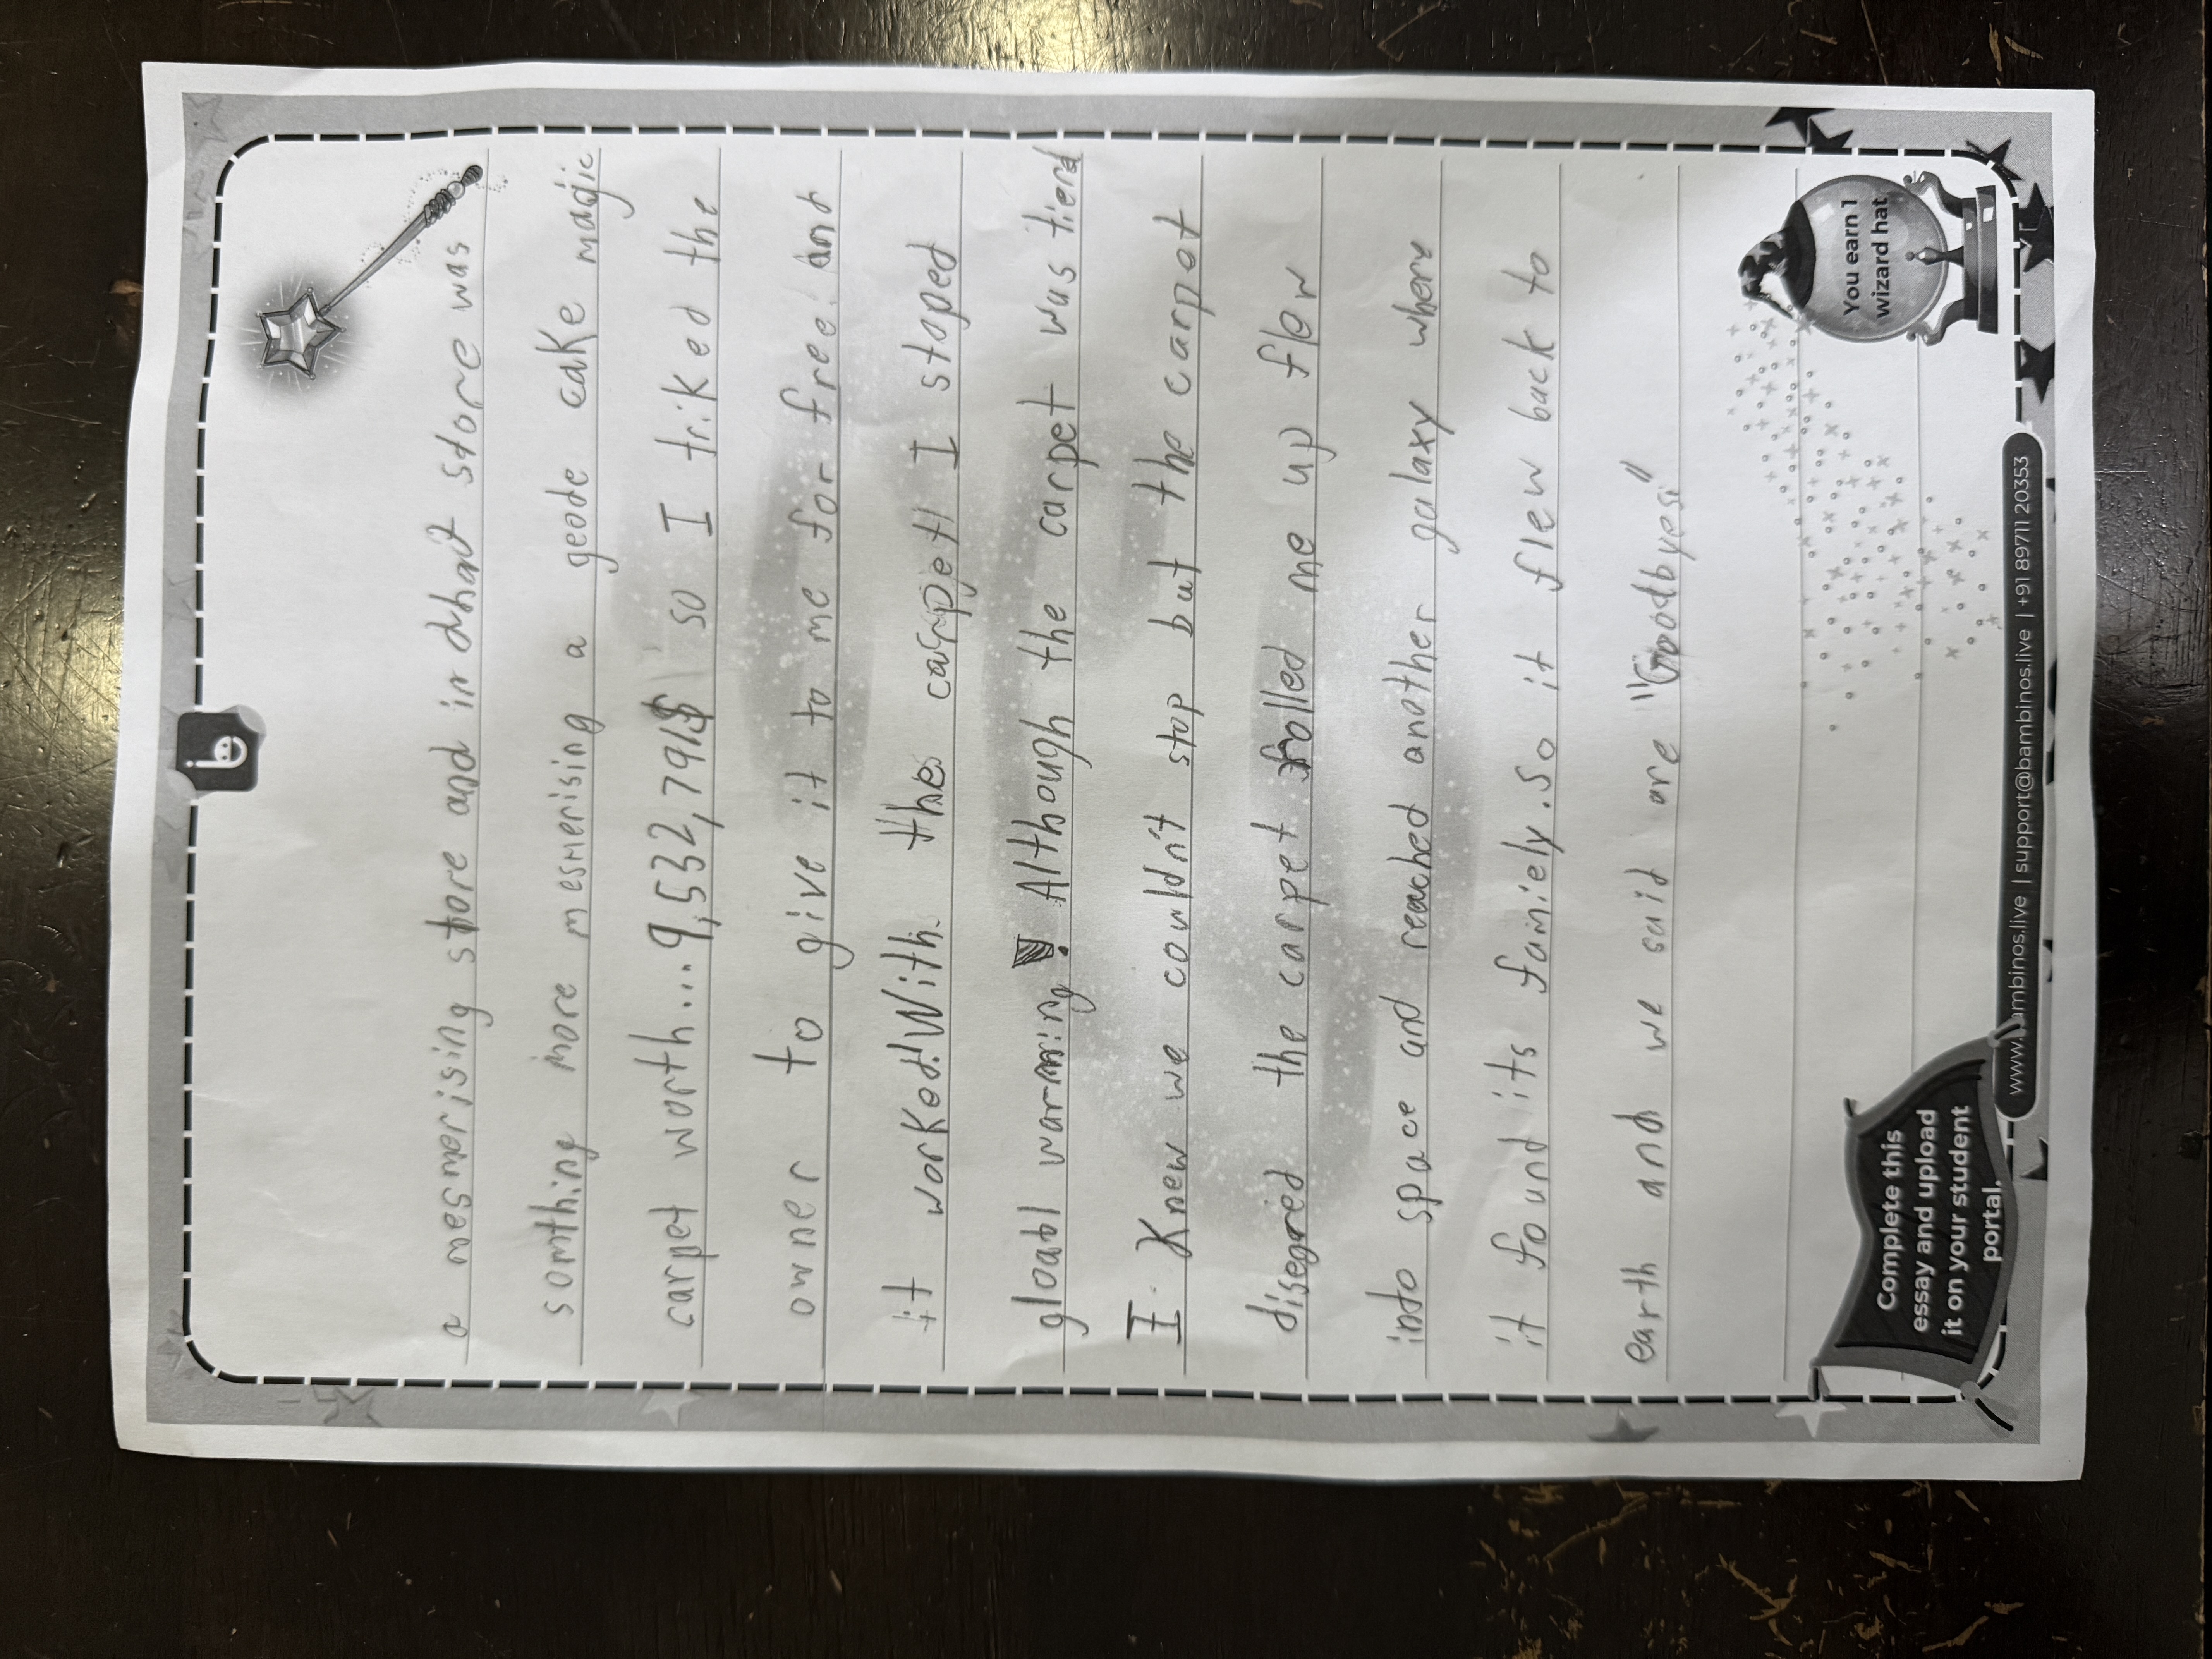 a mesmorising store and in dhat store was
somthing more mesmerising a geode cake magic
carpet worth....9,532,791$ so I triked the
owner to give it to me for free! and
it worked!With the carpet! I stoped
gloabl warming! Although the carpet was tierd
I Knew we couldn't stop but the carpot
disegried the carpet folled me up flew
into space and reached another galaxy where
it found its famiely.So it flew back to
earth and we said are "Goodbyes!"
You earn 1
wizard hat
Complete this
essay and upload
it on your student
portal.
www.bambinos.live | support@bambinos.live | +91 89711 20353